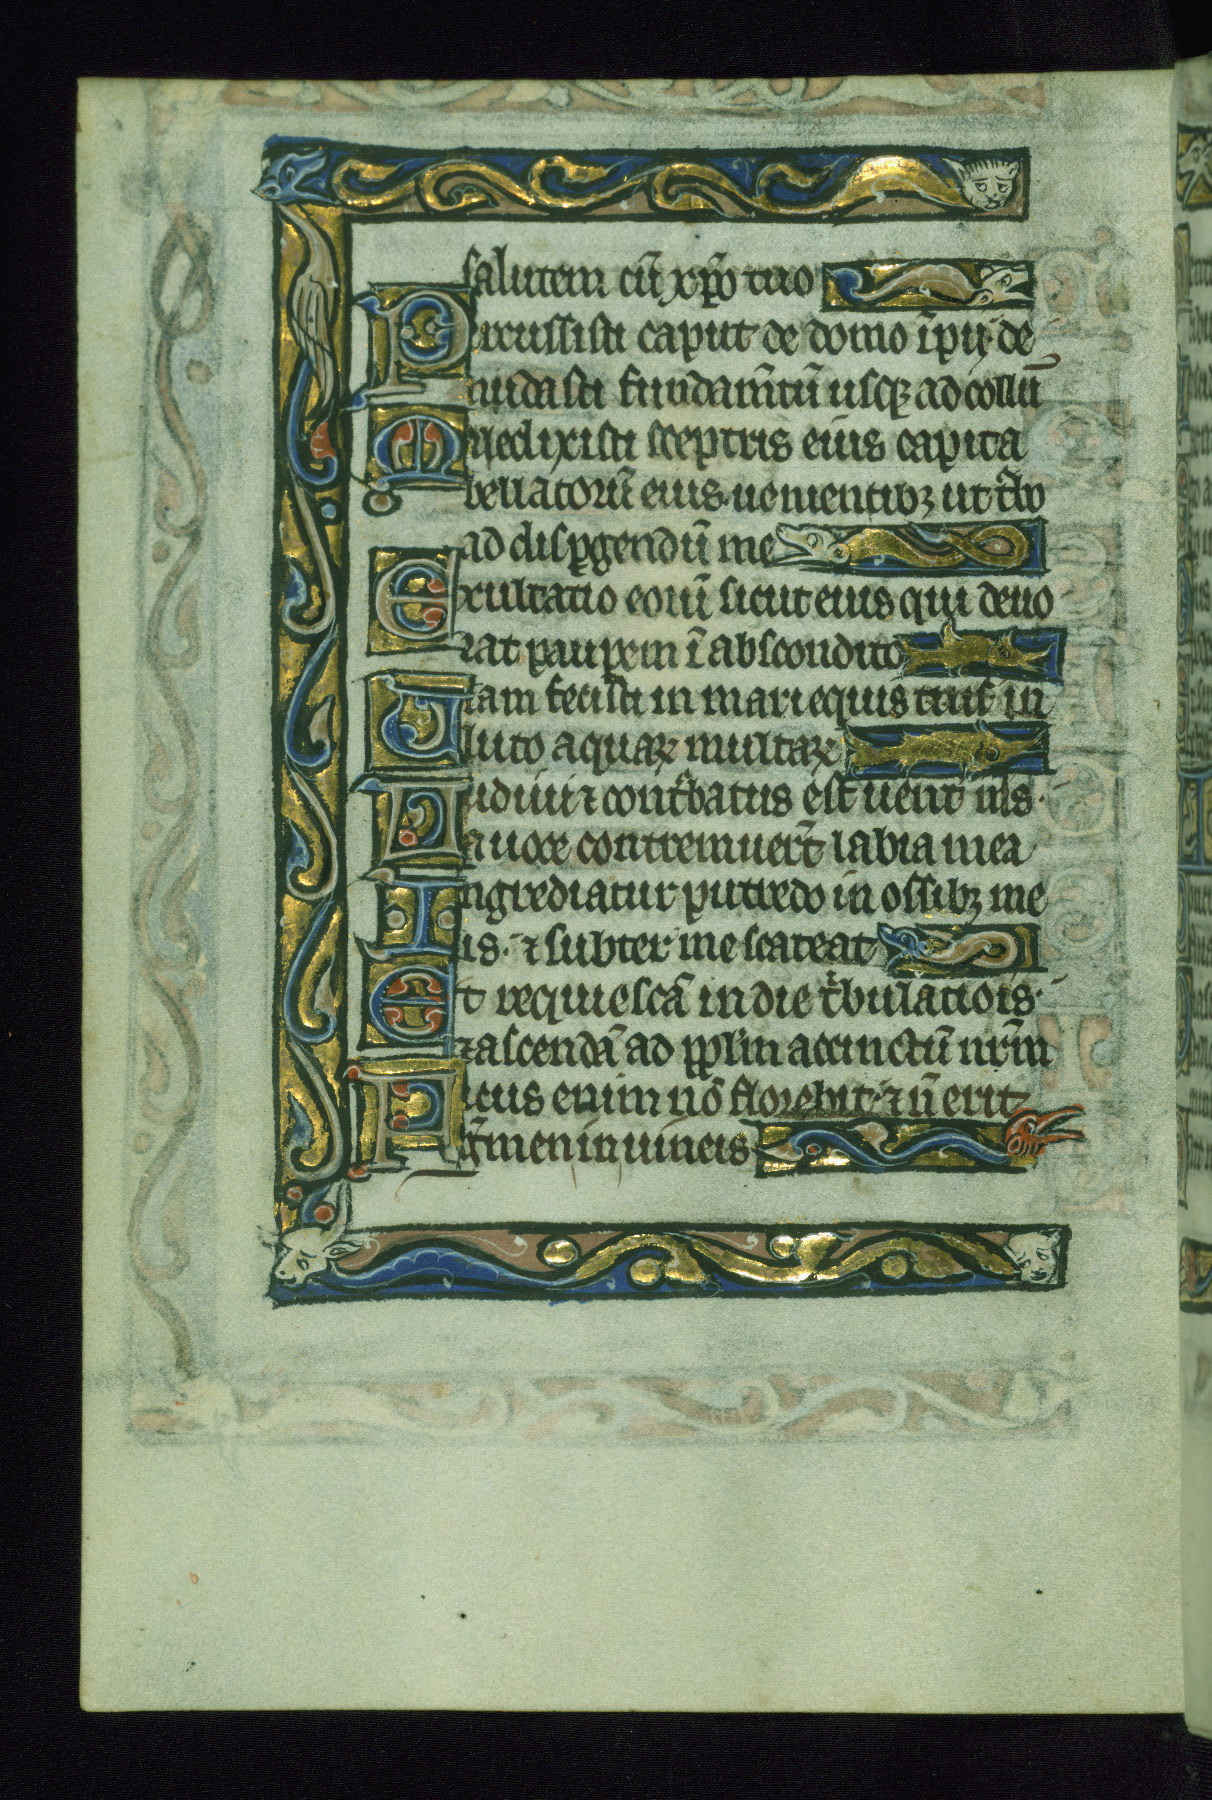 salutem cū xp̄o tuo
Percussisti caput de domo īpii· de
nudasti fundam̄tū usq; ad collū
Maledixisti sceptris eius capita
bellatorū eius· uenientib; ut t̉bo
ad disp̱gendū me
Exultatio eorū sicut eius qui deuo
rat paup̱em ī abscondito
Uiam fecisti in mari equis tuis· in
luto aquaꝝ multaꝝ
Audiui ⁊ cont̉batus est uent̄ ms̄·
a uoce contremuer̄t labia mea
Ingrediatur putredo in ossib; me
is· ⁊ subter me scateat
Et requiescā in die t̉bulatiōis·
⁊ ascendā ad pp̄lm accinctū nr̄m
Ficus enim nō florebit· ⁊ ñ erit
g̉men in uineis